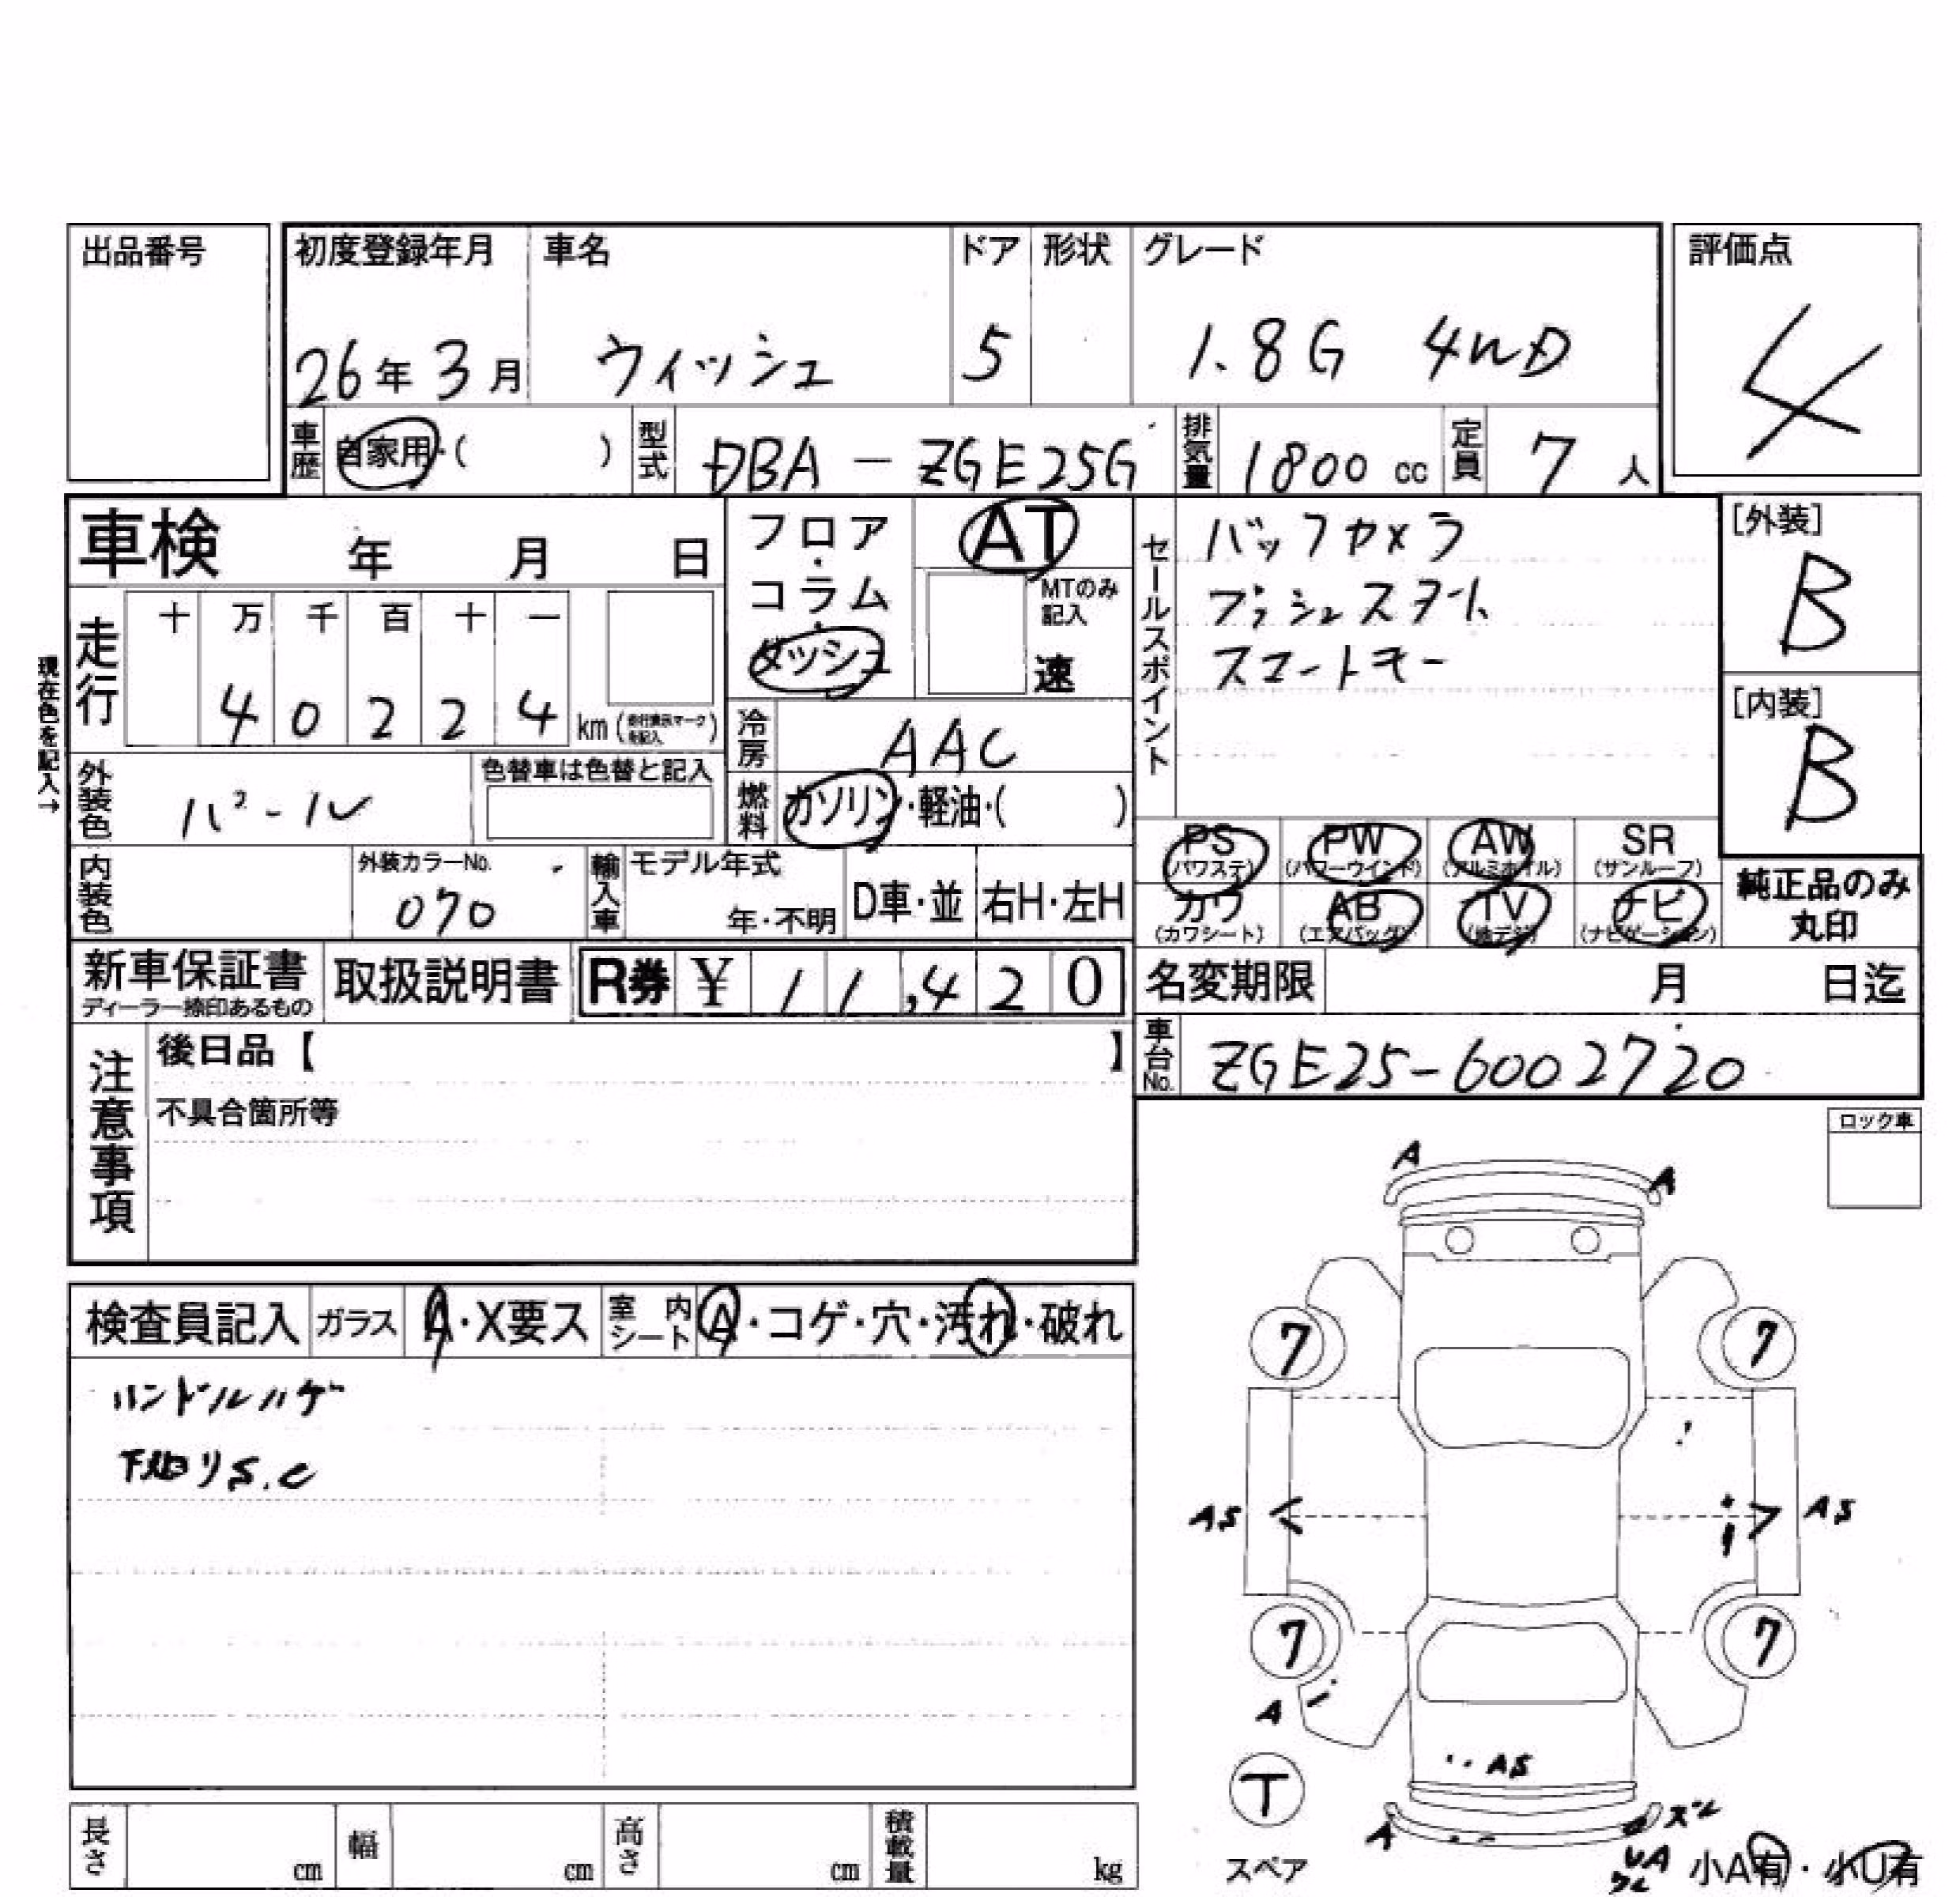 出品番号
初度登録年月 車名 ドア 形状 グレード
26年3月 ウィッシュ 5 1.8G 4WD
評価点
4
車歴 自家用・( ) 型式 DBA-ZGE25G 排気量 1800 cc 定員 7 人
車検 年 月 日
フロア・コラム・ダッシュ
AT
MTのみ記入
速
セールスポイント
バックカメラ
プッシュスタート
スマートキー
[外装]
B
[内装]
B
現在色を記入→
走行 十 万 千 百 十 一
4 0 2 2 4 km (走行表示マークを記入)
冷房 AAC
外装色 パール
色替車は色替と記入
燃料 ガソリン・軽油・( )
PS (パワステ) PW (パワーウインド) AW (アルミホイル) SR (サンルーフ)
カワ (カワシート) AB (エアバッグ) TV (地デジ) ナビ (ナビゲーション)
純正品のみ
丸印
内装色 外装カラーNo. 070
輸入車 モデル年式 年・不明 D車・並 右H・左H
新車保証書 ディーラー捺印あるもの
取扱説明書
R券 ¥ 11,420
名変期限 月 日迄
車台No. ZGE25-6002720
注意事項
後日品【 】
不具合箇所等
ロック車
検査員記入 ガラス A・X要ス 室内シート A・コゲ・穴・汚れ・破れ
ハンドルハゲ
下廻りS.C
A A
7 7
AS AS
7 7
A
AS
T
スペア
A
UA
小A有・小U有
長さ cm 幅 cm 高さ cm 積載量 kg